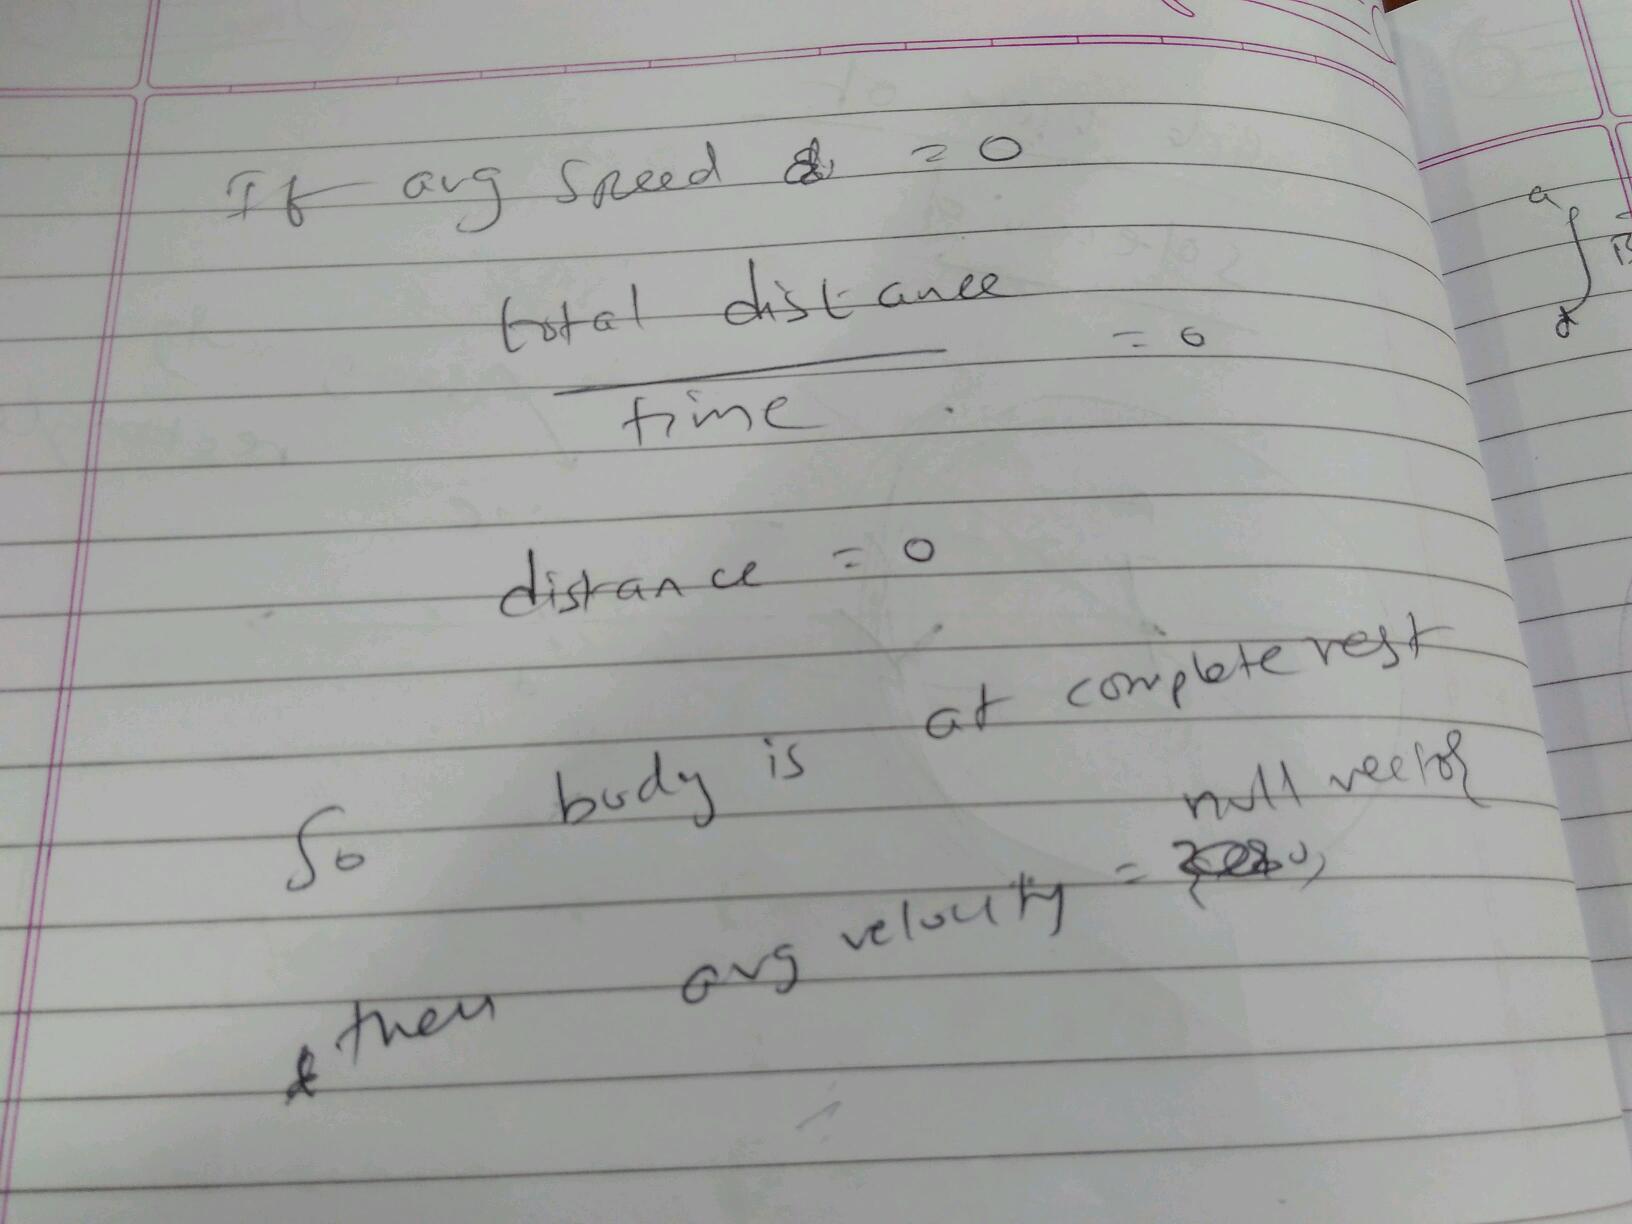 If avg speed = 0
total distance
= 0
time
distance = 0
So body is at complete rest
null vector
then avg velocity =
a